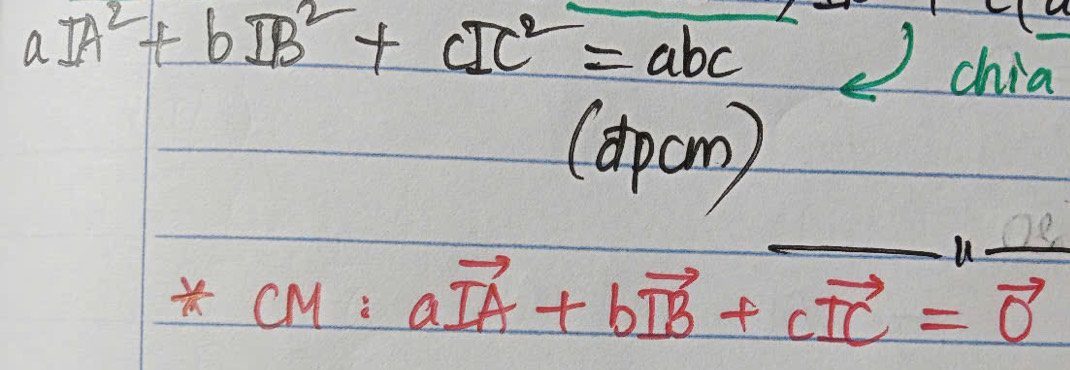 aIA² + bIB² + cIC² = abc
chia
(đpcm)
* CM : a\overrightarrow{IA} + b\overrightarrow{IB} + c\overrightarrow{IC} = \vec{0}